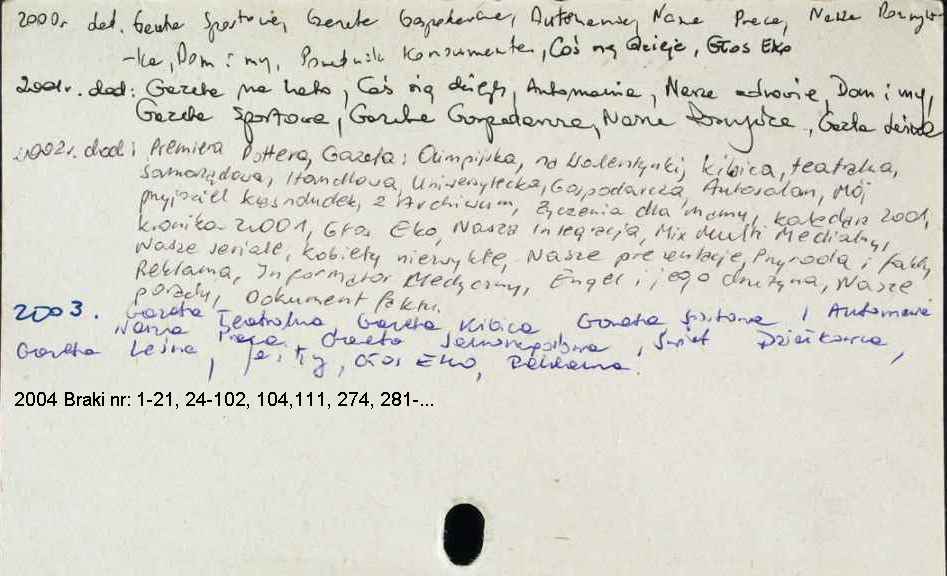 2000r. dod. Gazeta Sportowa, Gazeta Gospodarcza, Automania, Nasza Praca, Nasza Rozryw-
-ka, Dom i my, Poradnik Konsumenta, Coś się dzieje, Głos Eko
2001r. dod: Gazeta na lato, Coś się dzieje, Automania, Nasze zdrowie, Dom i my,
Gazeta Sportowa, Gazeta Gospodarcza, Nasza Rozrywka, Gazeta Leśna
2002r. dod: Premiera Pottera, Gazeta: Olimpijska, na Walentynki, Kibica, teatralna,
Samorządowa, Handlowa, Uniwersytecka, Gospodarcza, Autosalon, Mój
przyjaciel, z Archiwum, Życzenia dla mamy, kalendarz 2001,
kronika 2001, Głos Eko, Nasza Integracja, Mix Multi Medialny,
Nasze seriale, Kobiety niezwykłe, Nasze prezentacje, Przyroda i fakty,
Reklama, Informator Medyczny, Engel i jego drużyna, Nasze
porady, Dokument Faktu.
2003. Gazeta Teatralna, Gazeta Kibica Gazeta Sportowa, Automania
Nasza Praca, Gazeta Samorządowa, Świat Dzieciaka,
Gazeta Leśna, Ja i Ty, Głos Eko, Reklama.
2004 Braki nr: 1-21, 24-102, 104,111, 274, 281-...